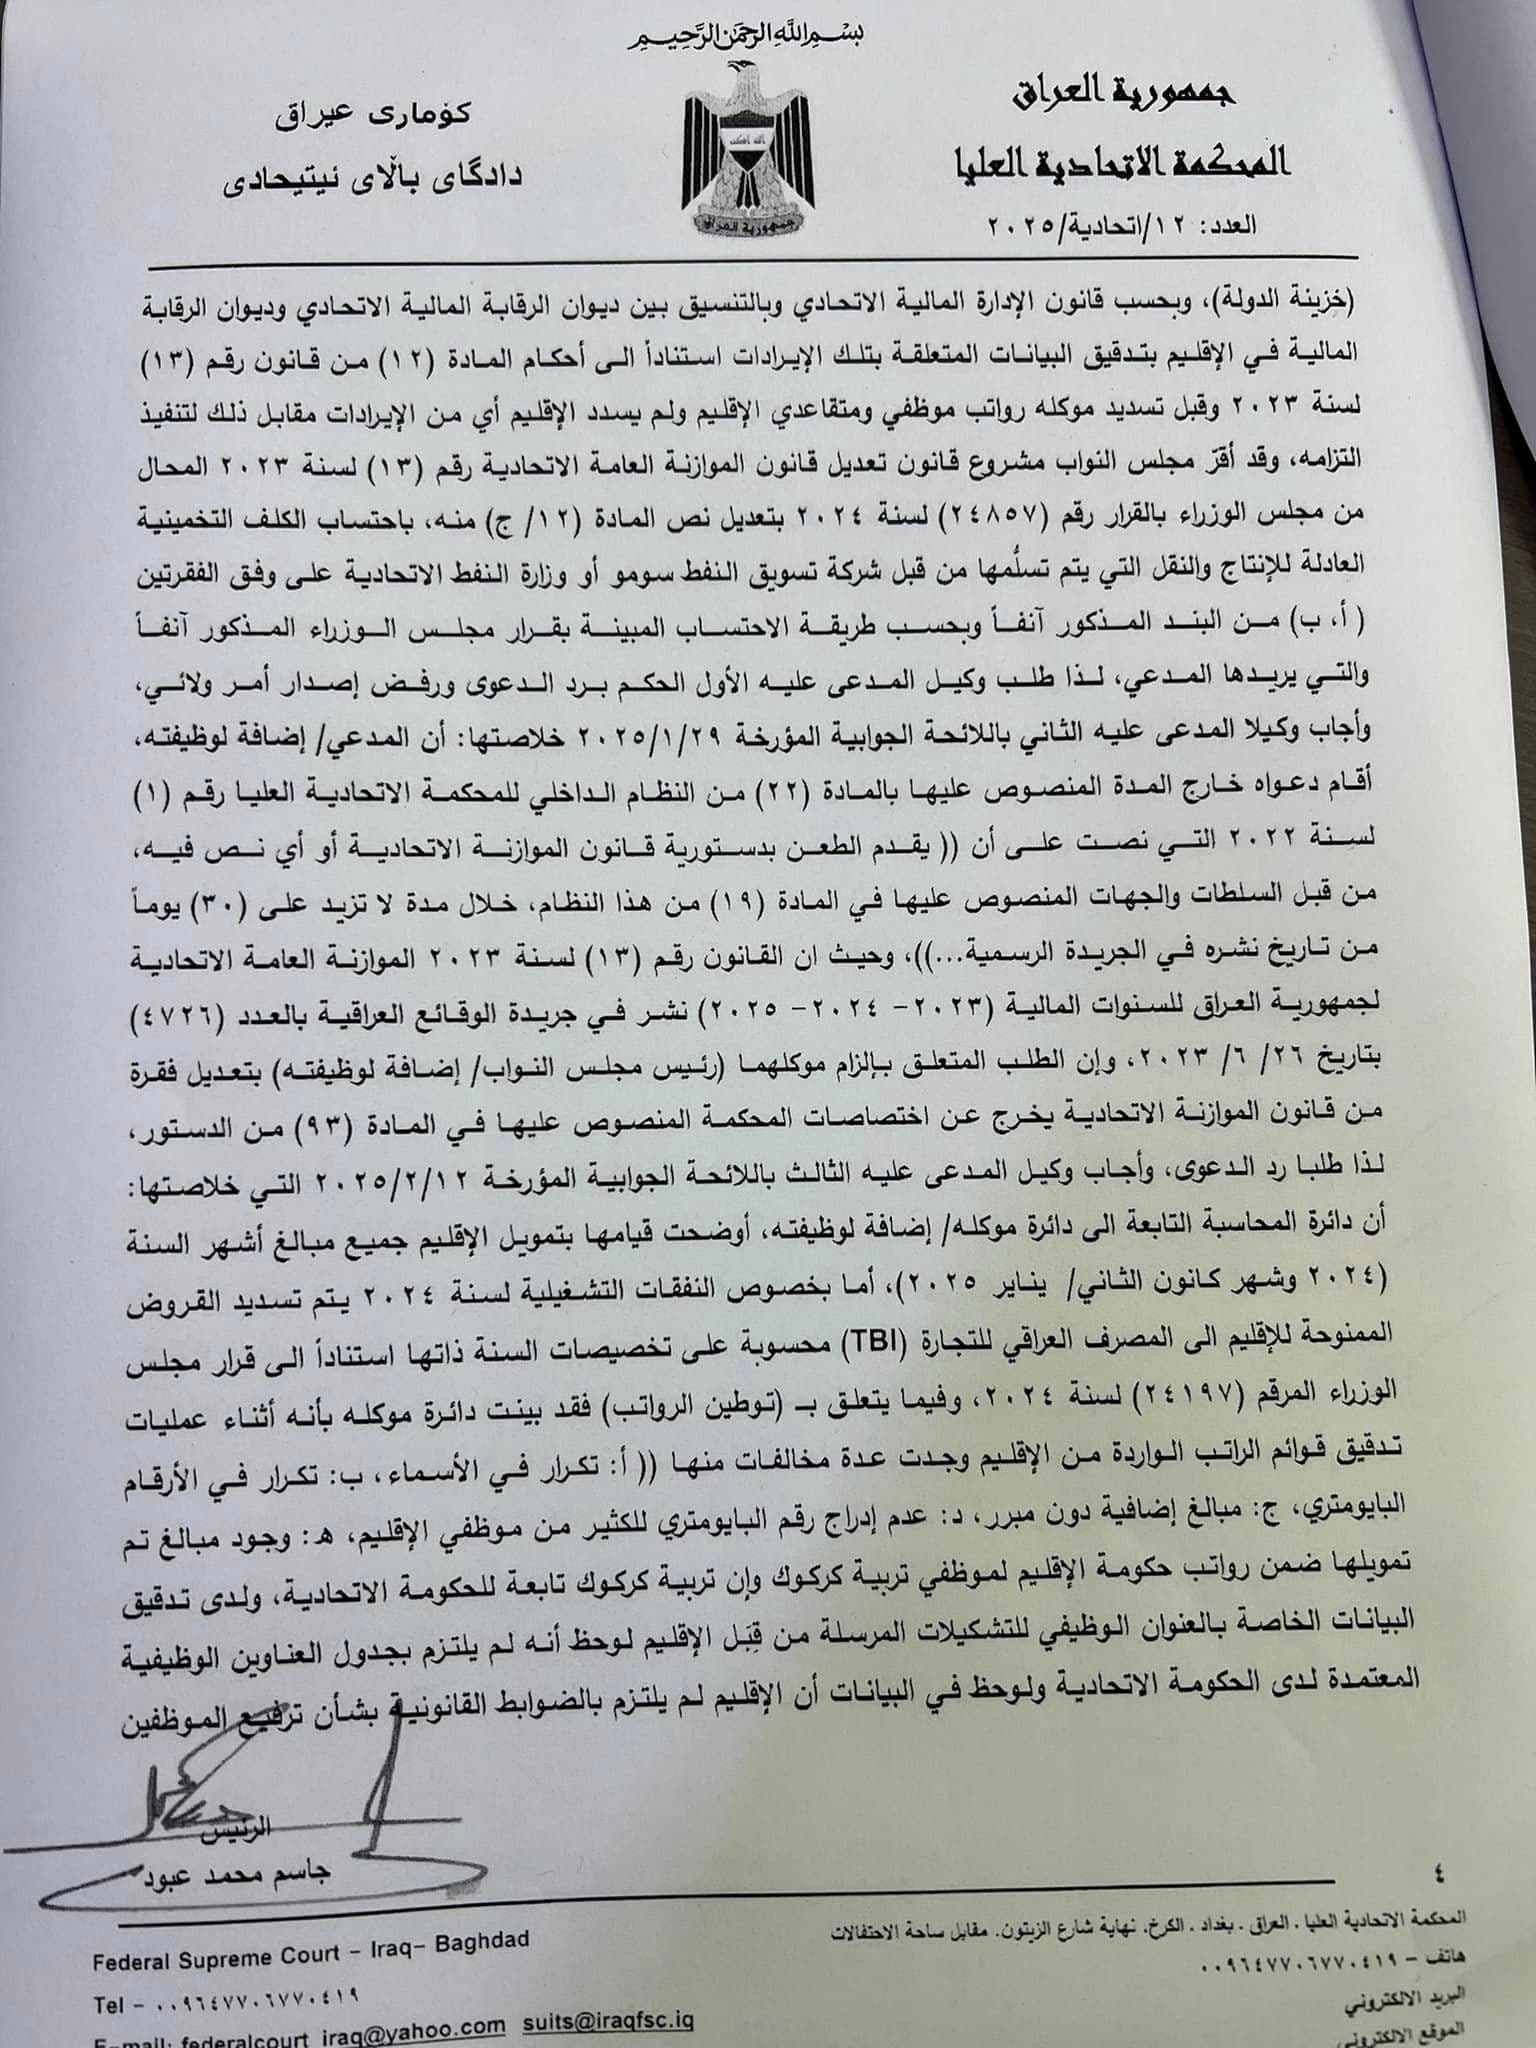 بسم الله الرحمن الرحيم
جمهورية العراق
المحكمة الاتحادية العليا
العدد: ١٢/اتحادية/٢٠٢٥
كۆماری عیراق
دادگای باڵای ئیتیحادی
جمهورية العراق
(خزينة الدولة)، وبحسب قانون الإدارة المالية الاتحادي وبالتنسيق بين ديوان الرقابة المالية الاتحادي وديوان الرقابة
المالية في الإقليم بتدقيق البيانات المتعلقة بتلك الإيرادات استناداً الى أحكام المادة (١٢) من قانون رقم (١٣)
لسنة ٢٠٢٣ وقبل تسديد موكله رواتب موظفي ومتقاعدي الإقليم ولم يسدد الإقليم أي من الإيرادات مقابل ذلك لتنفيذ
التزامه، وقد أقرّ مجلس النواب مشروع قانون تعديل قانون الموازنة العامة الاتحادية رقم (١٣) لسنة ٢٠٢٣ المحال
من مجلس الوزراء بالقرار رقم (٢٤٨٥٧) لسنة ٢٠٢٤ بتعديل نص المادة (١٢/ ج) منه، باحتساب الكلف التخمينية
العادلة للإنتاج والنقل التي يتم تسلُّمها من قبل شركة تسويق النفط سومو أو وزارة النفط الاتحادية على وفق الفقرتين
( أ، ب) من البند المذكور آنفاً وبحسب طريقة الاحتساب المبينة بقرار مجلس الوزراء المذكور آنفاً
والتي يريدها المدعي، لذا طلب وكيل المدعى عليه الأول الحكم برد الدعوى ورفض إصدار أمر ولائي،
وأجاب وكيلا المدعى عليه الثاني باللائحة الجوابية المؤرخة ٢٠٢٥/١/٢٩ خلاصتها: أن المدعي/ إضافة لوظيفته،
أقام دعواه خارج المدة المنصوص عليها بالمادة (٢٢) من النظام الداخلي للمحكمة الاتحادية العليا رقم (١)
لسنة ٢٠٢٢ التي نصت على أن (( يقدم الطعن بدستورية قانون الموازنة الاتحادية أو أي نص فيه،
من قبل السلطات والجهات المنصوص عليها في المادة (١٩) من هذا النظام، خلال مدة لا تزيد على (٣٠) يوماً
من تاريخ نشره في الجريدة الرسمية...))، وحيث ان القانون رقم (١٣) لسنة ٢٠٢٣ الموازنة العامة الاتحادية
لجمهورية العراق للسنوات المالية (٢٠٢٣- ٢٠٢٤- ٢٠٢٥) نشر في جريدة الوقائع العراقية بالعدد (٤٧٢٦)
بتاريخ ٢٦/ ٦/ ٢٠٢٣، وإن الطلب المتعلق بإلزام موكلهما (رئيس مجلس النواب/ إضافة لوظيفته) بتعديل فقرة
من قانون الموازنة الاتحادية يخرج عن اختصاصات المحكمة المنصوص عليها في المادة (٩٣) من الدستور،
لذا طلبا رد الدعوى، وأجاب وكيل المدعى عليه الثالث باللائحة الجوابية المؤرخة ٢٠٢٥/٢/١٢ التي خلاصتها:
أن دائرة المحاسبة التابعة الى دائرة موكله/ إضافة لوظيفته، أوضحت قيامها بتمويل الإقليم جميع مبالغ أشهر السنة
(٢٠٢٤ وشهر كانون الثاني/ يناير ٢٠٢٥)، أما بخصوص النفقات التشغيلية لسنة ٢٠٢٤ يتم تسديد القروض
الممنوحة للإقليم الى المصرف العراقي للتجارة (TBI) محسوبة على تخصيصات السنة ذاتها استناداً الى قرار مجلس
الوزراء المرقم (٢٤١٩٧) لسنة ٢٠٢٤، وفيما يتعلق بـ (توطين الرواتب) فقد بينت دائرة موكله بأنه أثناء عمليات
تدقيق قوائم الراتب الواردة من الإقليم وجدت عدة مخالفات منها (( أ: تكرار في الأسماء، ب: تكرار في الأرقام
البايومتري، ج: مبالغ إضافية دون مبرر، د: عدم إدراج رقم البايومتري للكثير من موظفي الإقليم، هـ: وجود مبالغ تم
تمويلها ضمن رواتب حكومة الإقليم لموظفي تربية كركوك وإن تربية كركوك تابعة للحكومة الاتحادية، ولدى تدقيق
البيانات الخاصة بالعنوان الوظيفي للتشكيلات المرسلة من قِبَل الإقليم لوحظ أنه لم يلتزم بجدول العناوين الوظيفية
المعتمدة لدى الحكومة الاتحادية ولوحظ في البيانات أن الإقليم لم يلتزم بالضوابط القانونية بشأن ترفيع الموظفين
الرئيس
جاسم محمد عبود
٤
المحكمة الاتحادية العليا . العراق . بغداد . الكرخ. نهاية شارع الزيتون. مقابل ساحة الاحتفالات
هاتف – ٠٠٩٦٤٧٧٠٦٧٧٠٤١٩
البريد الالكتروني
الموقع الالكتروني
Federal Supreme Court – Iraq– Baghdad
Tel – ٠٠٩٦٤٧٧٠٦٧٧٠٤١٩
E-mail: federalcourt_iraq@yahoo.com suits@iraqfsc.iq